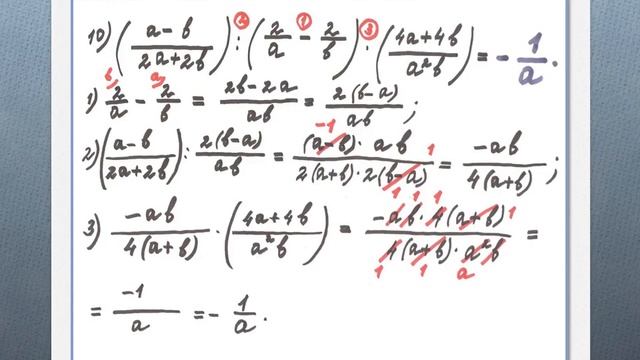 10) ((a-b)/(2a+2b)) ② : (2/a ① - 2/b) ③ : ((4a+4b)/(a²b)) = - 1/a.
1) 2/a (b) - 2/b (a) = (2b-2a)/(ab) = (2(b-a))/(ab);
2) ((a-b)/(2a+2b)) : (2(b-a))/(ab) = ((a-b)·ab)/(2(a+b)·2(b-a)) -1 1 = (-ab)/(4(a+b));
3) (-ab)/(4(a+b)) · ((4a+4b)/(a²b)) = (-ab·4(a+b))/(4(a+b)·a²b) 1 1 1 1 1 1 a =
= (-1)/a = - 1/a.